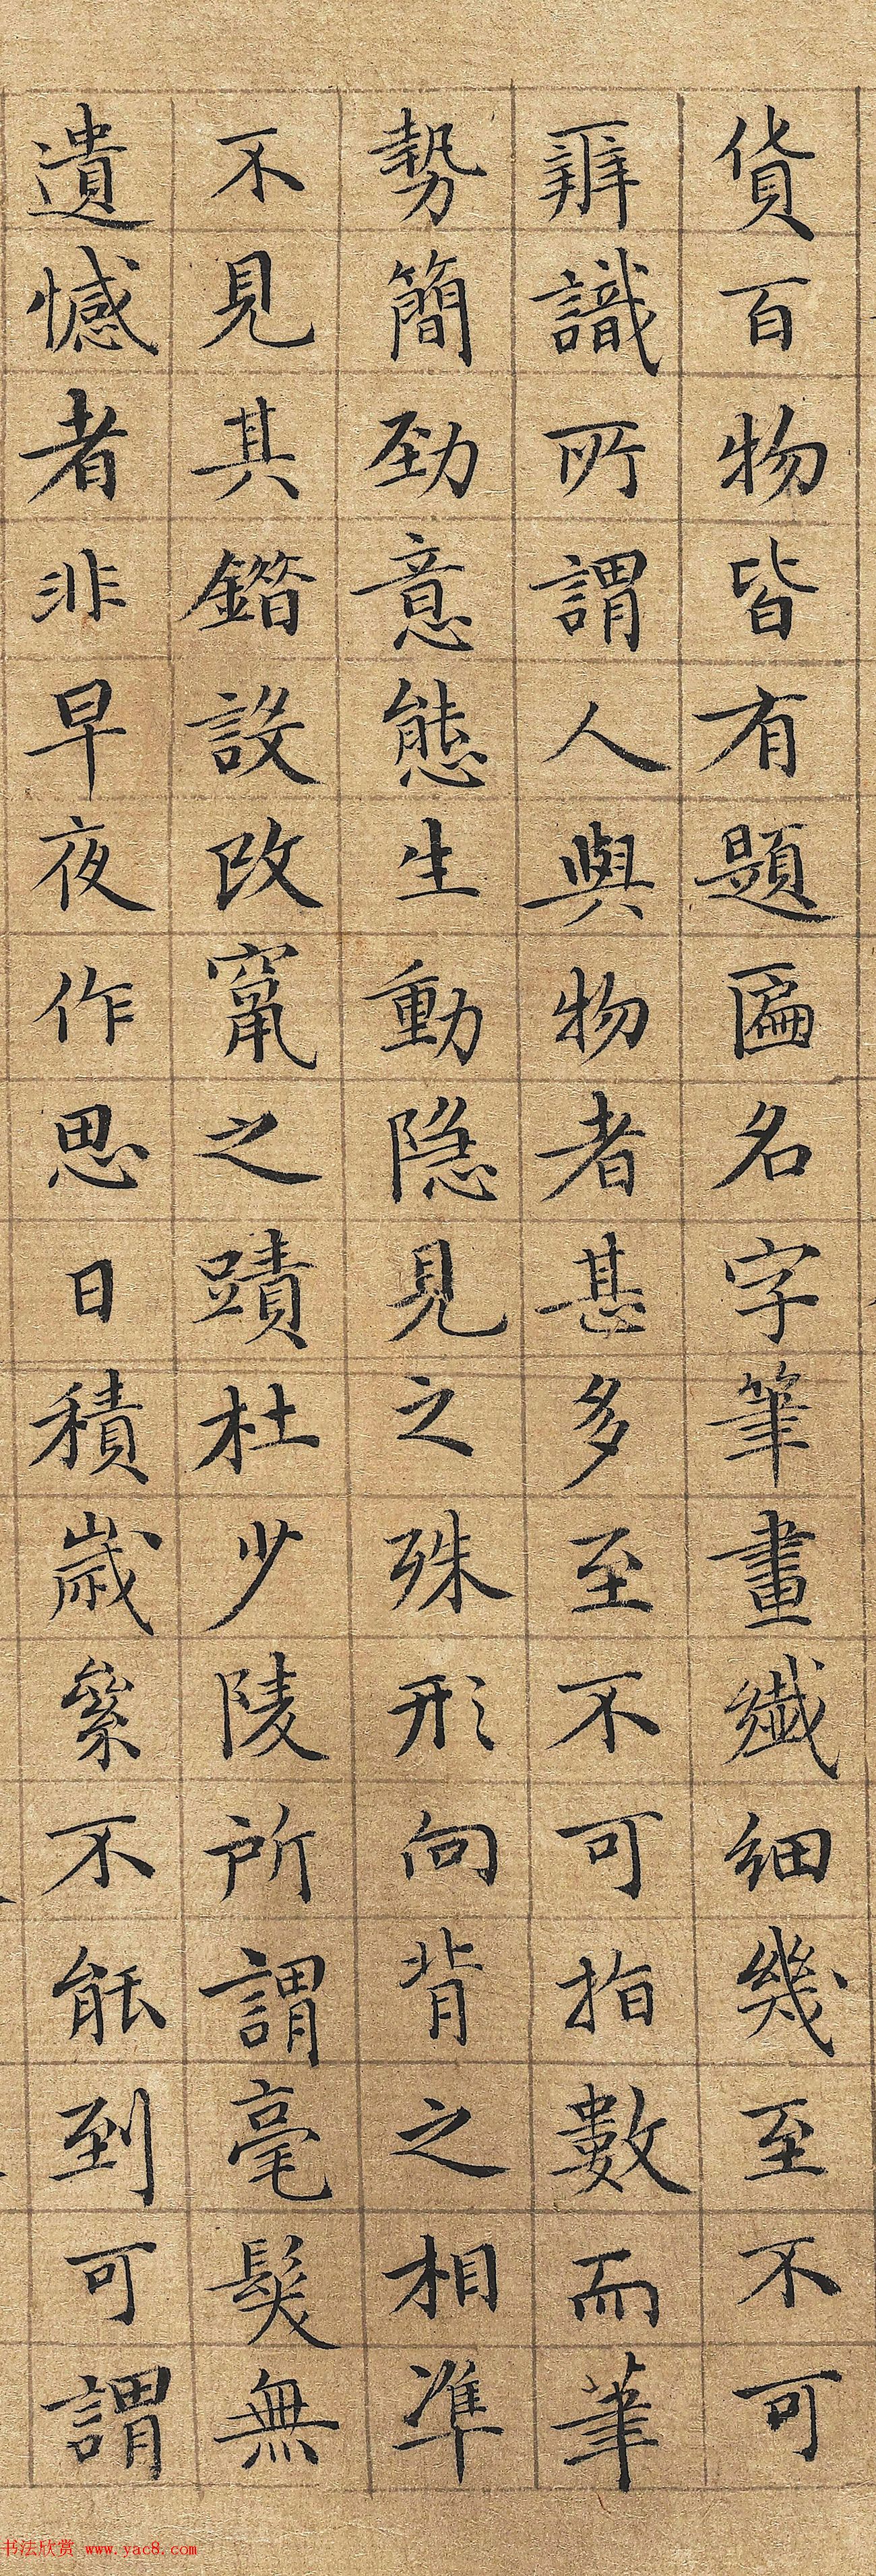 貨百物皆有題匾名字筆畫纎細幾至不可
辨識所謂人與物者甚多至不可指數而筆
勢簡勁意態生動隐見之殊形向背之相準
不見其錯設改竄之蹟杜少陵所謂毫髮無
遺憾者非早夜作思日積嵗絫不能到可謂
书法欣赏 www.yac8.com